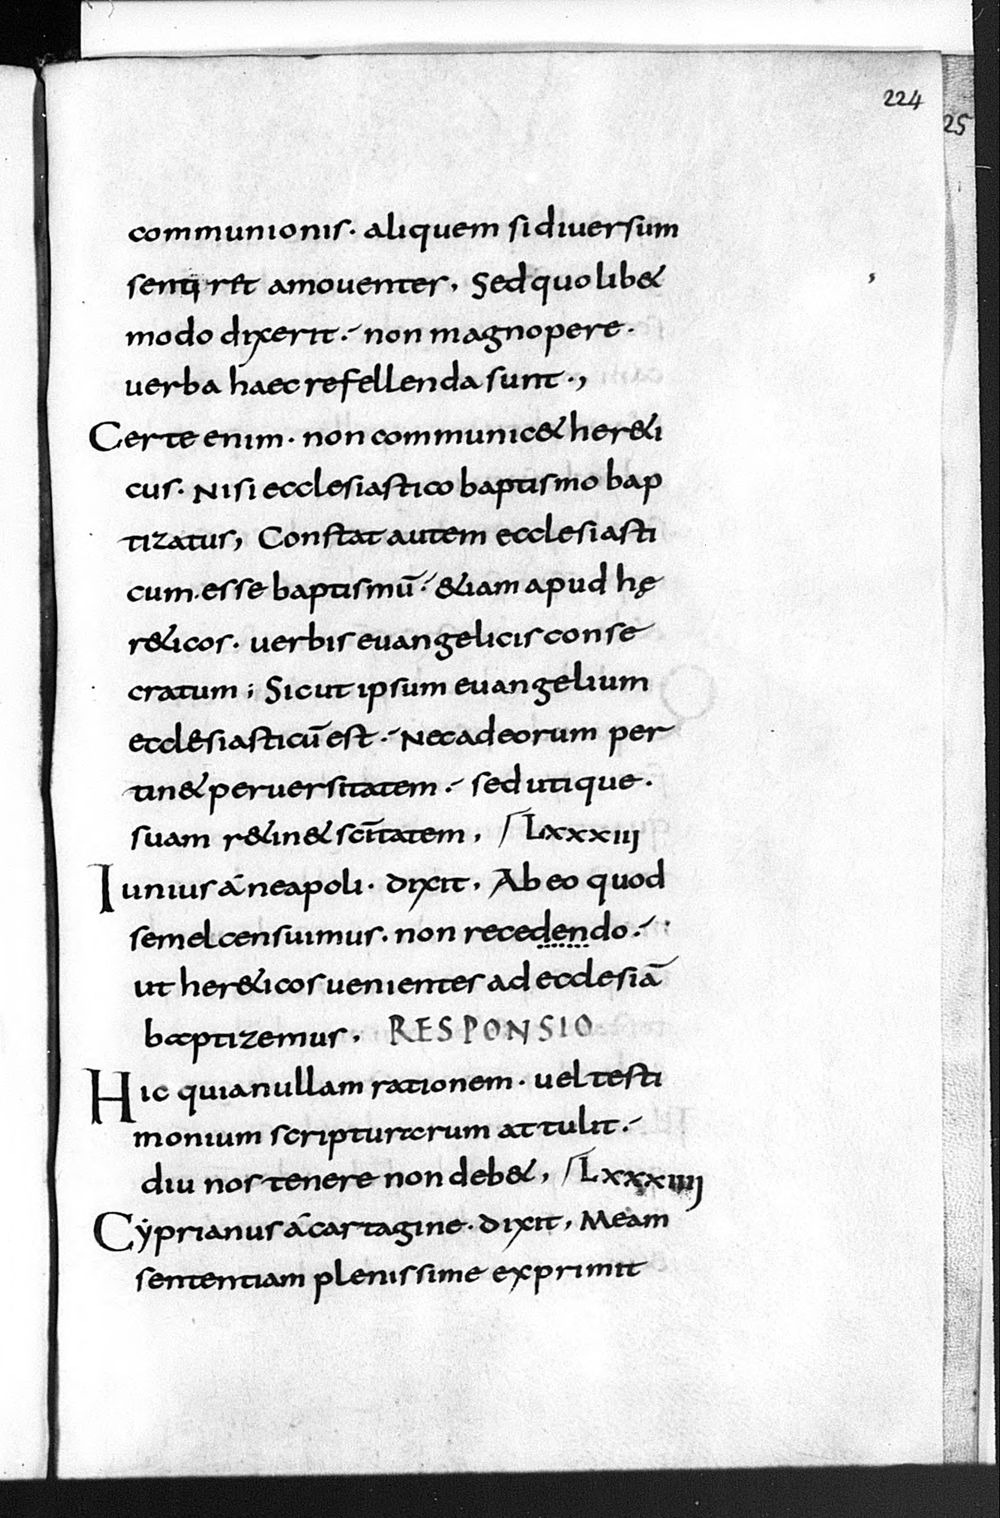 224
25
communionis· aliquem si diuersum
sentiret amouentes, Sed quo lib&
modo dixerit:· non magnopere·
uerba haec refellenda sunt·,
Certe enim· non communic& her&i
cus· Nisi ecclesiastico baptismo bap
tizatus, Constat autem ecclesiasti
cum·esse baptismū·´ &iam apud hę
r&icos· uerbis euangelicis conse
cratum; Sicut ipsum euangelium
ecclesiasticū est·´ Nec ad eorum per
tin& peruersitatem·´ sed utique·
suam r&in& scītatem, Lxxxiij
Iunius á neapoli· dixit, Ab eo quod
semel censuimus· non recedendo·´
ut her&icos uenientes ad ecclesiā
baptizemus, RESPONSIO
Hic quia nullam rationem· uel testi
monium scripturarum attulit·´
diu nos tenere non deb&, Lxxxiiij
Cẏprianus á cartagine· dixit, Meam
sententiam plenissime exprimit